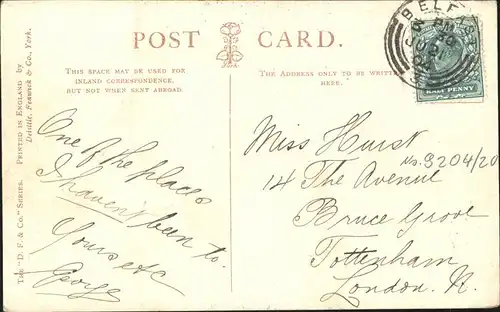 POST CARD.
THIS SPACE MAY BE USED FOR
INLAND CORRESPONDENCE
BUT NOT WHEN SENT ABROAD.
THE ADDRESS ONLY TO BE WRITTEN
HERE.
BELFAST
HALF PENNY
THE "D. F. & Co." SERIES. PRINTED IN ENGLAND by
Delittle, Fenwick & Co., York.
One of the places
I haven't been to.
Yours etc
George
Miss Hurst
14 The Avenue
Bruce Grove
Tottenham
London. N.
9204/20